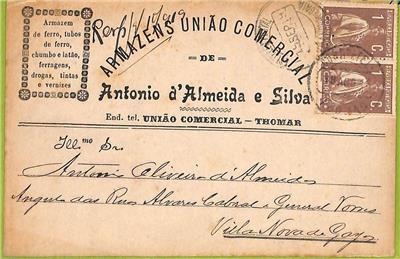 Armazem
de ferro, tubos
de ferro,
chumbo e latão,
ferragens,
drogas, tintas
e vernizes
ARMAZENS UNIÃO COMERCIAL
DE
Antonio d'Almeida e Silva
End. tel. UNIÃO COMERCIAL - THOMAR
1 C.
1 C.
Illmo Sr.
Antonio Oliveira d'Almeida
Angulo das Ruas Alvares Cabral e General Torres
Villa Nova de Gaya